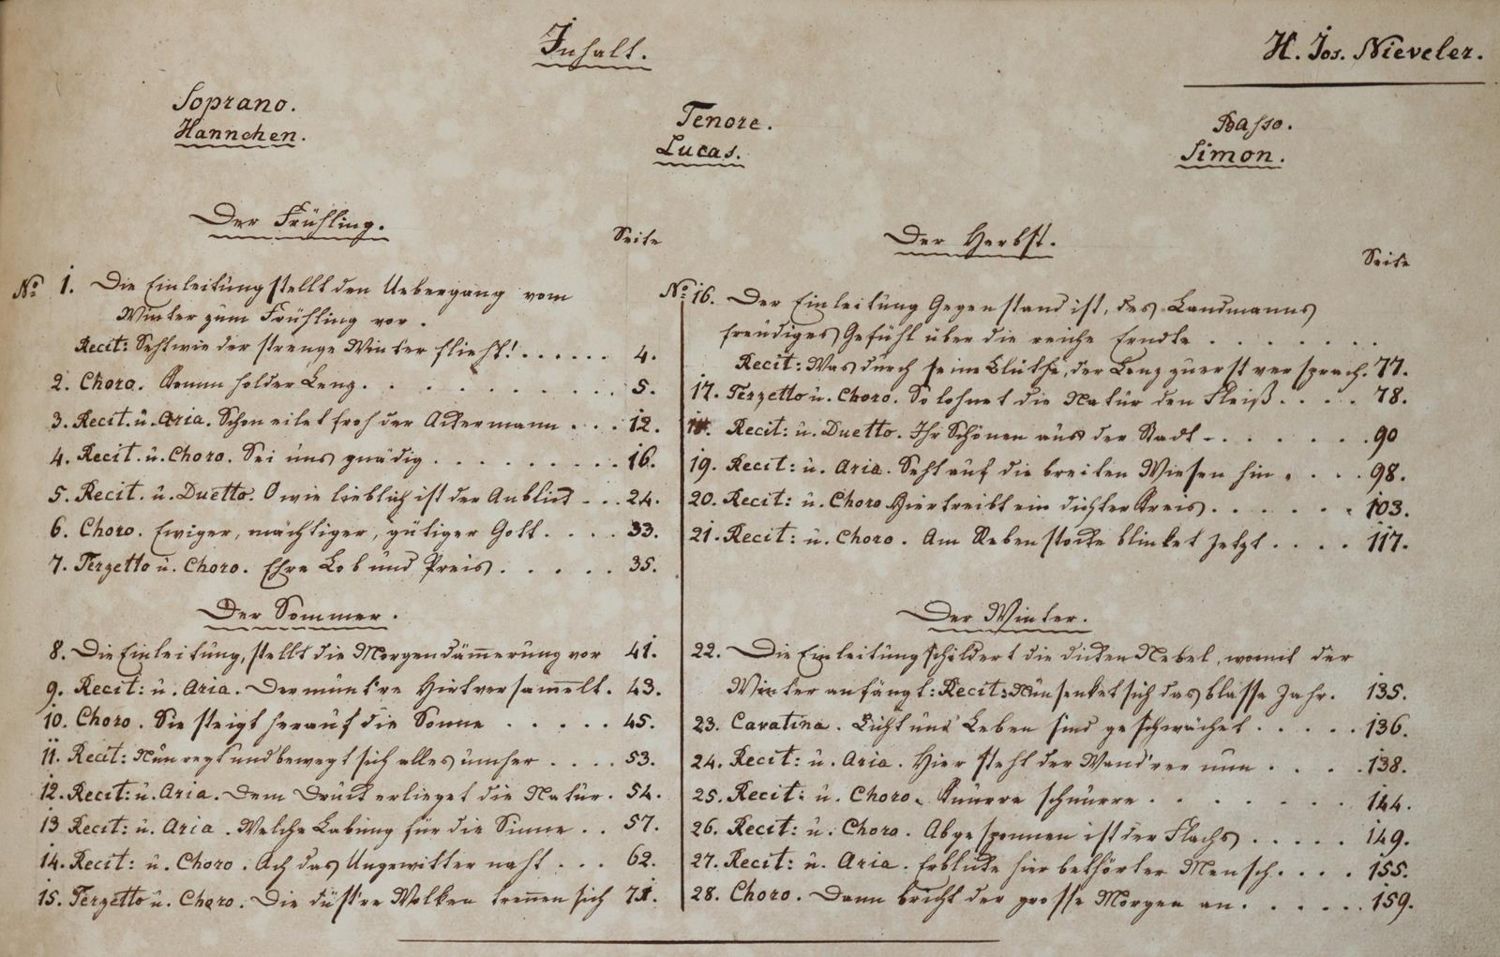 Inhalt.
H. Jos. Nieveler.
Soprano.
Hannchen.
Tenore.
Lucas.
Basso.
Simon.
Der Frühling.
Seite
No. 1. Die Einleitung stellt den Uebergang vom
Winter zum Frühling vor.
Recit: Seht wie der strenge Winter flieht! . . . . . . 4.
2. Choro. Komm holder Lenz. . . . . . . . . . 5.
3. Recit. u. Aria. Schon eilet froh der Ackermann . . . 12.
4. Recit. u. Choro. Sei uns gnädig . . . . . . . . . 16.
5. Recit. u. Duetto. O wie lieblich ist der Anblick . . . 24.
6. Choro. Ewiger, mächtiger, gütiger Gott. . . . . 33.
7. Terzetto u. Choro. Ehre Lob und Preis . . . . . . 35.
Der Sommer.
8. Die Einleitung, stellt die Morgendämerung vor 41.
9. Recit: u. Aria. Der muntre Hirt versamelt. 43.
10. Choro. Sie steigt herauf die Sonne . . . . . 45.
11. Recit: Nun regt und bewegt sich alles umher . . . . 53.
12. Recit: u. Aria. Dem Druck erlieget die Natur. 54.
13 Recit: u. Aria. Welche Labung für die Sinne . . 57.
14. Recit: u. Choro. Ach das Ungewitter naht . . . 62.
15. Terzetto u. Choro. Die düstre Wolken trenen sich 71.
Der Herbst.
Seite
No. 16. Der Einleitung Gegenstand ist, des Landmanns
freudiges Gefühl über die reiche Erndte . . . . . . .
Recit: Was durch seine Blüthe, der Lenz zuerst versprach. 77.
17. Terzetto u. Choro. So lohnet die Natur den Fleiß. . . . . 78.
18. Recit: u. Duetto. Ihr Schönen aus der Stadt . . . . . . . 90
19. Recit: u. Aria. Seht auf die breiten Wiesen hin . . . . 98.
20. Recit: u. Choro Hier treibt ein dichter Kreis. . . . . . . 103.
21. Recit: u. Choro. Am Rebenstocke blinket jetzt . . . . 117.
Der Winter.
22. Die Einleitung schildert die dicken Nebel, womit der
Winter anfängt: Recit: Nun senket sich das blasse Jahr. 135.
23. Cavatina. Licht und Leben sind geschwächet . . . . . 136.
24. Recit: u. Aria. Hier steht der Wand'rer nun . . . . 138.
25. Recit: u. Choro. Knurre schnurre . . . . . . . 144.
26. Recit: u. Choro. Abgesponnen ist der Flachs . . . . . 149.
27. Recit: u. Aria. Erblicke hier bethörter Mensch. . . . 155.
28. Choro. Dann bricht der grosse Morgen an. . . . . . 159.